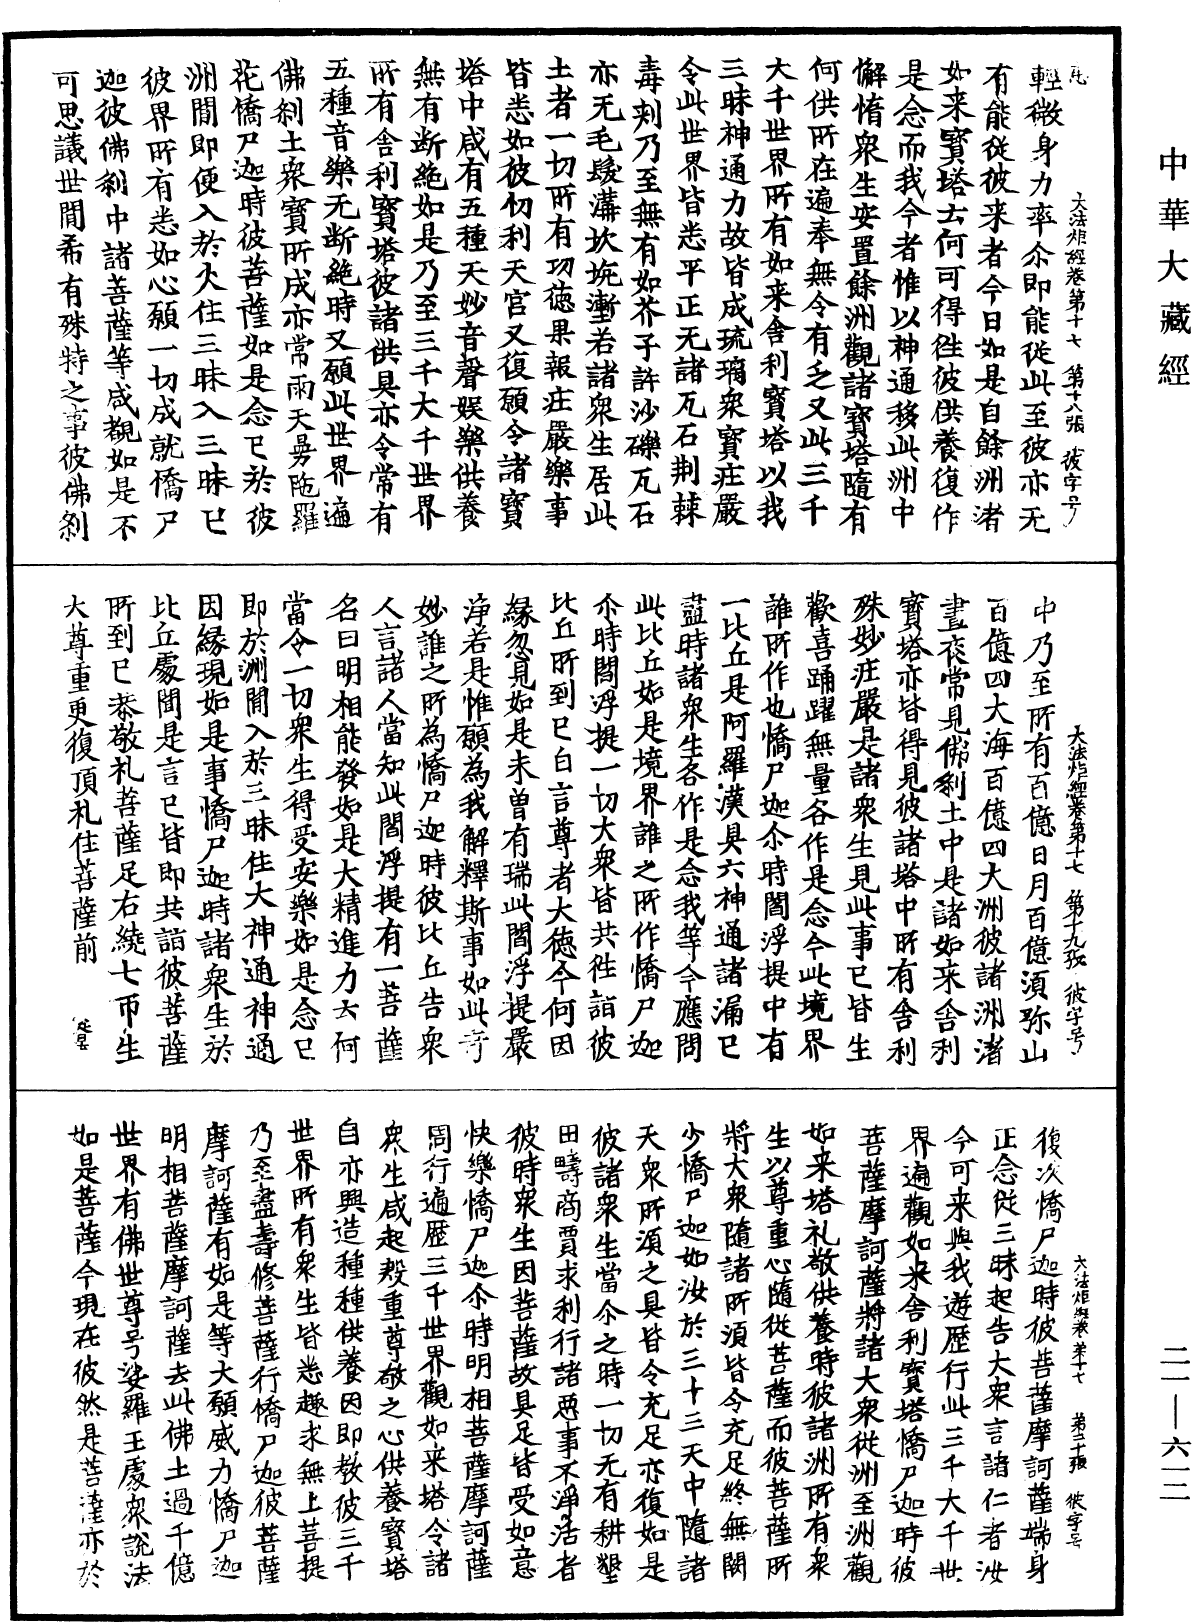 中華大藏經
二一—六一三
大法炬經卷第十七 第十八張 彼字号
輕微身力率尒即能從此至彼亦无
有能從彼來者今日如是自餘洲渚
如来寳塔去何可得徃彼供養復作
是念而我今者惟以神通移此洲中
懈惰衆生安置餘洲觀諸寳塔隨有
何供所在遍奉無令有乏又此三千
大千世界所有如来舍利寳塔以我
三昧神通力故皆成琉璃衆寳莊嚴
令此世界皆悉平正无諸瓦石荆棘
毒刺乃至無有如芥子許沙礫瓦石
亦无毛髮溝坎坑壍若諸衆生居此
土者一切所有功徳果報莊嚴樂事
皆悉如彼忉利天宫又復願令諸寳
塔中咸有五種天妙音聲娱樂供養
無有断絶如是乃至三千大千世界
所有舍利寳塔彼諸供具亦令常有
五種音樂无断絶時又願此世界遍
佛刹土衆寳所成亦常雨天曼陁羅
花憍尸迦時彼菩薩如是念已於彼
洲間即便入於火住三昧入三昧已
彼界所有悉如心願一切成就憍尸
迦彼佛刹中諸菩薩等咸覩如是不
可思議世間希有殊特之事彼佛刹
大法炬經卷第十七 第十九張 彼字号
中乃至所有百億日月百億須弥山
百億四大海百億四大洲彼諸洲渚
晝夜常見佛刹土中是諸如来舍利
寳塔亦皆得見彼諸塔中所有舍利
殊妙莊嚴是諸衆生見此事已皆生
歡喜踊躍無量各作是念今此境界
誰所作也憍尸迦尒時閻浮提中有
一比丘是阿羅漢具六神通諸漏已
盡時諸衆生各作是念我等今應問
此比丘如是境界誰之所作憍尸迦
尒時閻浮提一切大衆皆共徃詣彼
比丘所到已白言尊者大徳今何因
縁忽見如是未曾有瑞此閻浮提嚴
淨若是惟願為我解釋斯事如此竒
妙誰之所為憍尸迦時彼比丘告衆
人言諸人當知此閻浮提有一菩薩
名曰明相能發如是大精進力去何
當令一切衆生得受安樂如是念已
即於洲間入於三昧住大神通神通
因縁現如是事憍尸迦時諸衆生於
比丘處聞是言已皆即共詣彼菩薩
所到已恭敬礼菩薩足右繞七帀生
大尊重更復頂礼住菩薩前
大法炬經卷第十七 第二十張 彼字号
復次憍尸迦時彼菩薩摩訶薩端身
正念從三昧起告大衆言諸仁者汝
今可来與我遊歷行此三千大千世
界遍觀如来舍利寳塔憍尸迦時彼
菩薩摩訶薩將諸大衆從洲至洲觀
如来塔礼敬供養時彼諸洲所有衆
生以尊重心隨從菩薩而彼菩薩所
將大衆隨諸所須皆令充足終無闕
少憍尸迦如汝於三十三天中隨諸
天衆所須之具皆令充足亦復如是
彼諸衆生當尒之時一切无有耕墾
田疇商賈求利行諸惡事不淨活者
彼時衆生因菩薩故具足皆受如意
快樂憍尸迦尒時明相菩薩摩訶薩
周行遍歴三千世界觀如来塔令諸
衆生咸起殷重尊敬之心供養寳塔
自亦興造種種供養因即教彼三千
世界所有衆生皆悉趣求無上菩提
乃至盡壽修菩薩行憍尸迦彼菩薩
摩訶薩有如是等大願威力憍尸迦
明相菩薩摩訶薩去此佛土過千億
世界有佛世尊号娑羅王處衆說法
如是菩薩今現在彼然是菩薩亦於